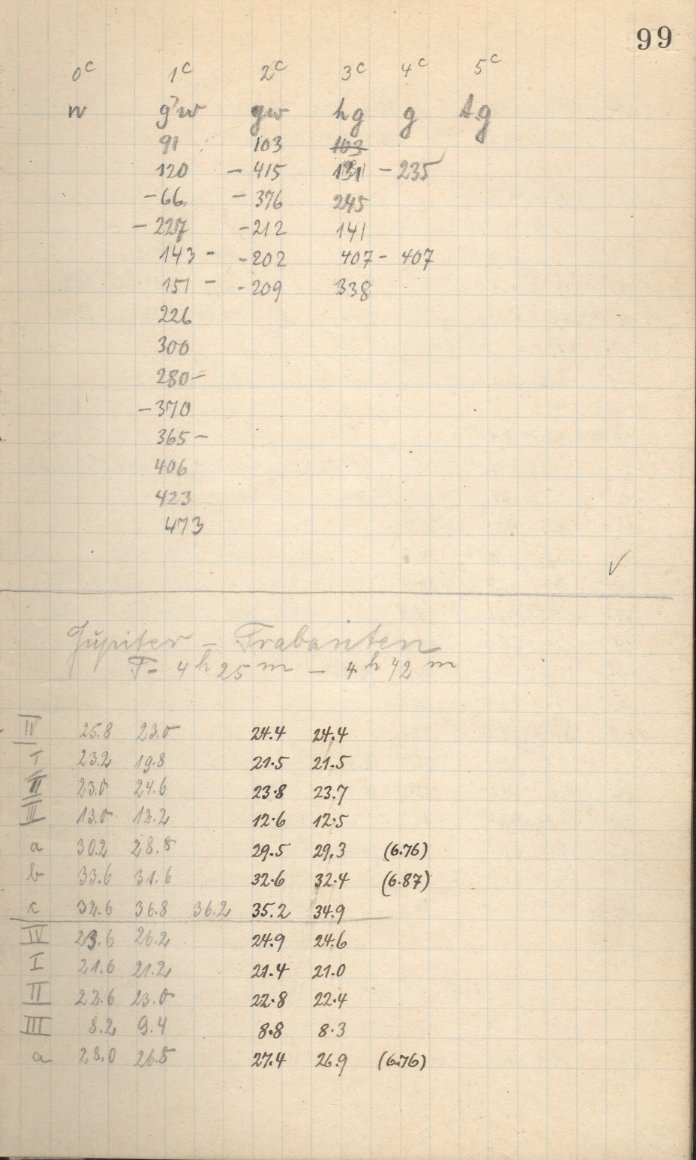 99
0c 1c 2c 3c 4c 5c
w g'w gw hg g tg
91 103 103
120 - 415 131 - 235
-66 - 376 245
- 227 -212 141
143 - - 202 407 - 407
151 - - 209 338
226
300
280 -
- 370
365 -
406
423
473
✓
Jupiter - Trabanten
T= 4h 25m - 4h 42m
IV 25.8 23.0 24.4 24.4
I 23.2 19.8 21.5 21.5
II 23.0 24.6 23.8 23.7
III 13.0 12.2 12.6 12.5
a 30.2 28.8 29.5 29.3 (6.76)
b 33.6 31.6 32.6 32.4 (6.87)
c 32.6 36.8 36.2 35.2 34.9
IV 23.6 26.2 24.9 24.6
I 21.6 21.2 21.4 21.0
II 22.6 23.0 22.8 22.4
III 8.2 9.4 8.8 8.3
a 28.0 26.8 27.4 26.9 (6.76)